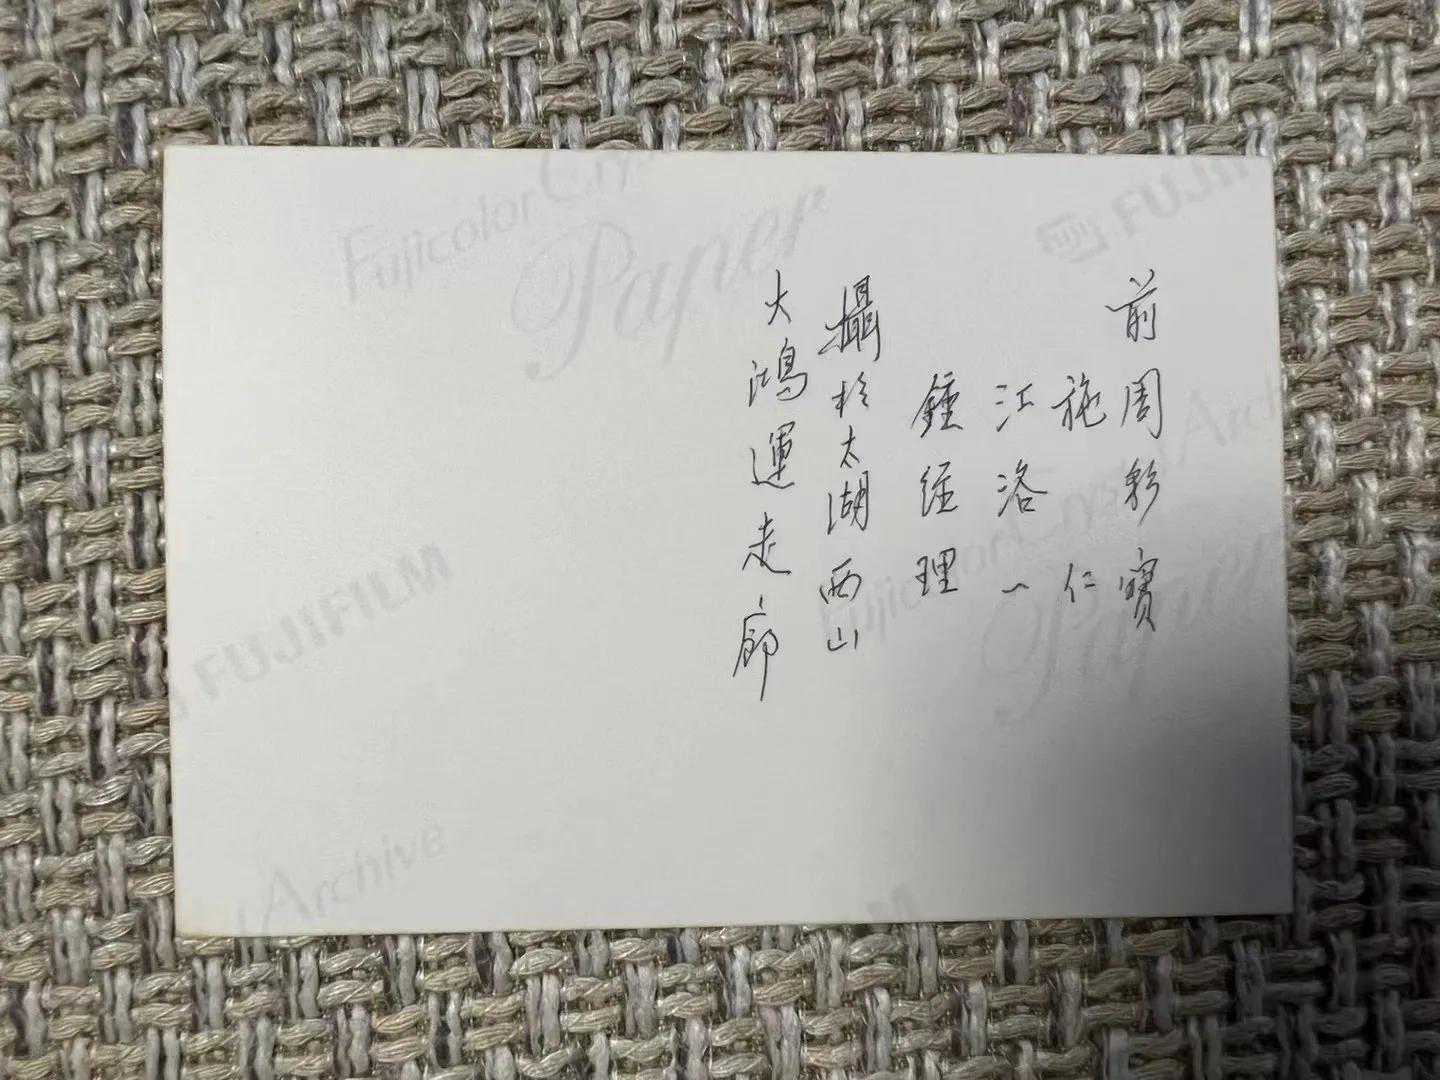 前周彩寶
施仁
江洛一
鍾經理
攝於太湖西山
大鴻運走廊
FujicolorCrys
Paper
FUJIFILM
FUJIFILM
Archive
Fujicolor Crys
Paper
Archi